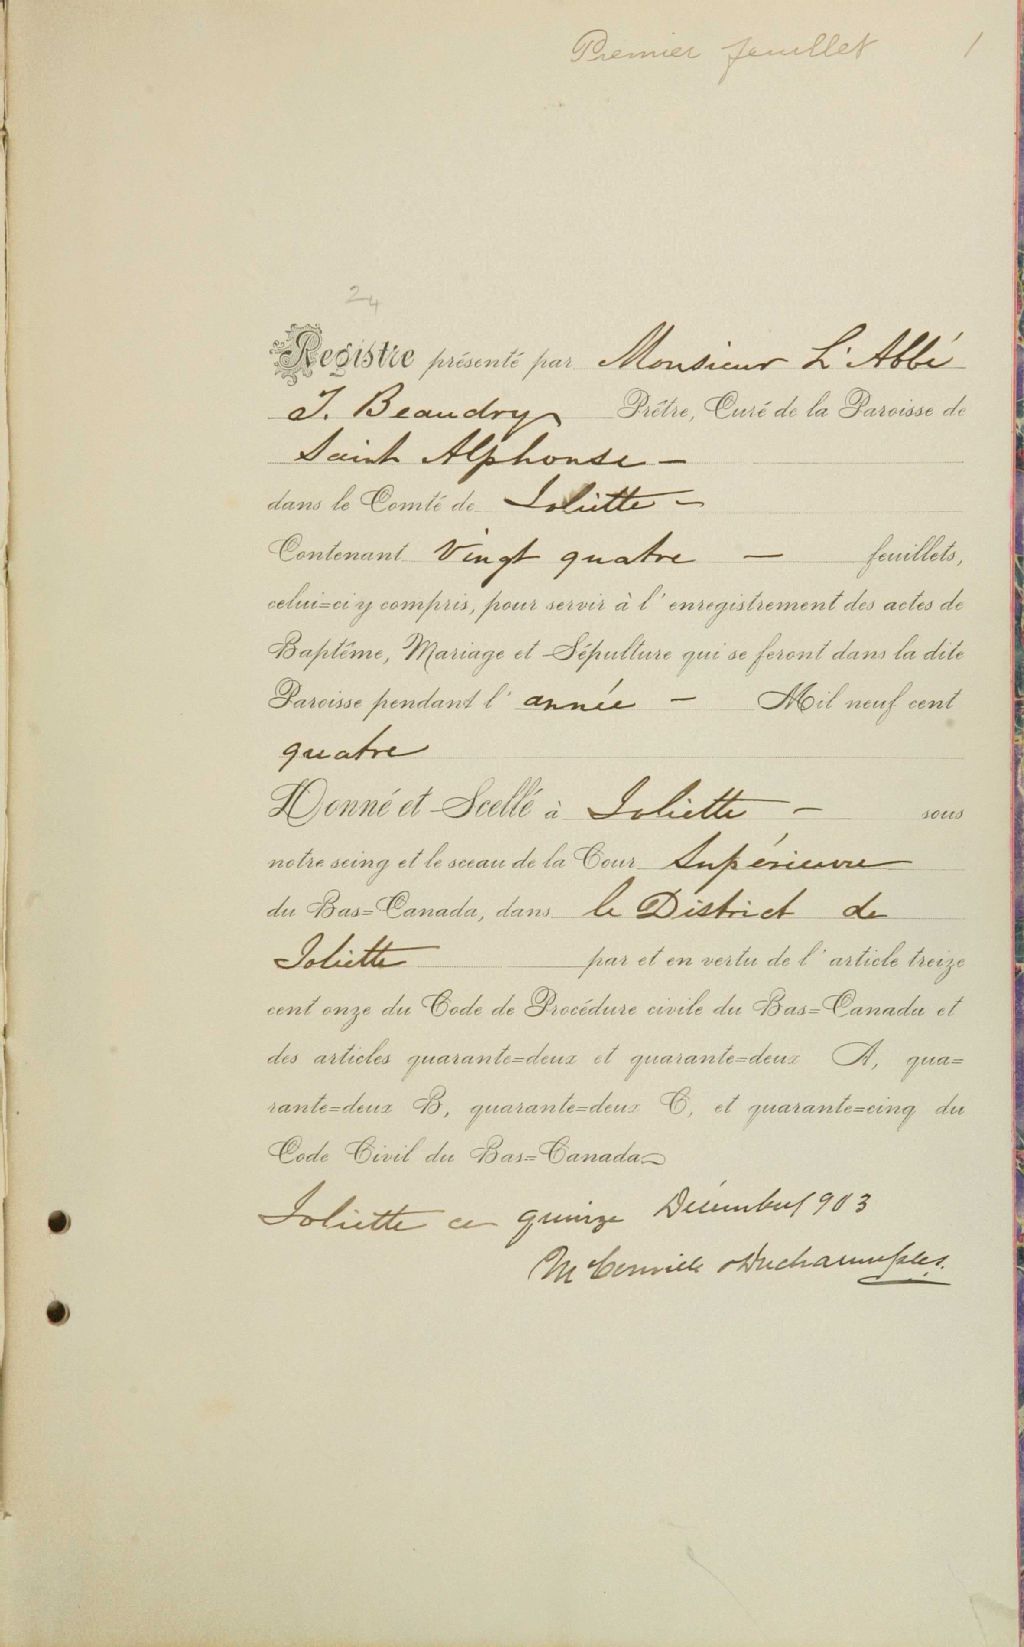 Premier feuillet 1
24
Registre présenté par Monsieur L'Abbé
J. Beaudry Prêtre, Curé de la Paroisse de
Saint Alphonse —
dans le Comté de Joliette —
Contenant Vingt quatre — feuillets,
celui=ci y compris, pour servir à l'enregistrement des actes de
Baptême, Mariage et Sépulture qui se feront dans la dite
Paroisse pendant l'année — Mil neuf cent
quatre
Donné et Scellé à Joliette — sous
notre seing et le sceau de la Cour Supérieure
du Bas=Canada, dans le District de
Joliette par et en vertu de l'article treize
cent onze du Code de Procédure civile du Bas=Canada et
des articles quarante=deux et quarante=deux A, qua=
rante=deux B, quarante=deux C, et quarante=cinq du
Code Civil du Bas=Canada
Joliette ce quinze Décembre 1903